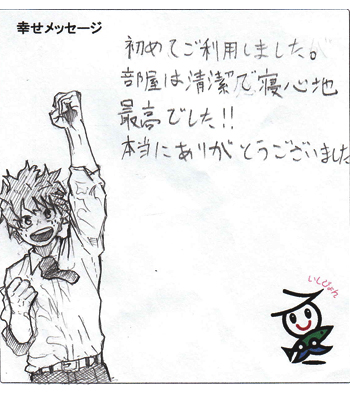 幸せメッセージ
初めてご利用しました。
部屋は清潔で寝心地
最高でした!!
本当にありがとうございました
いしぴょん